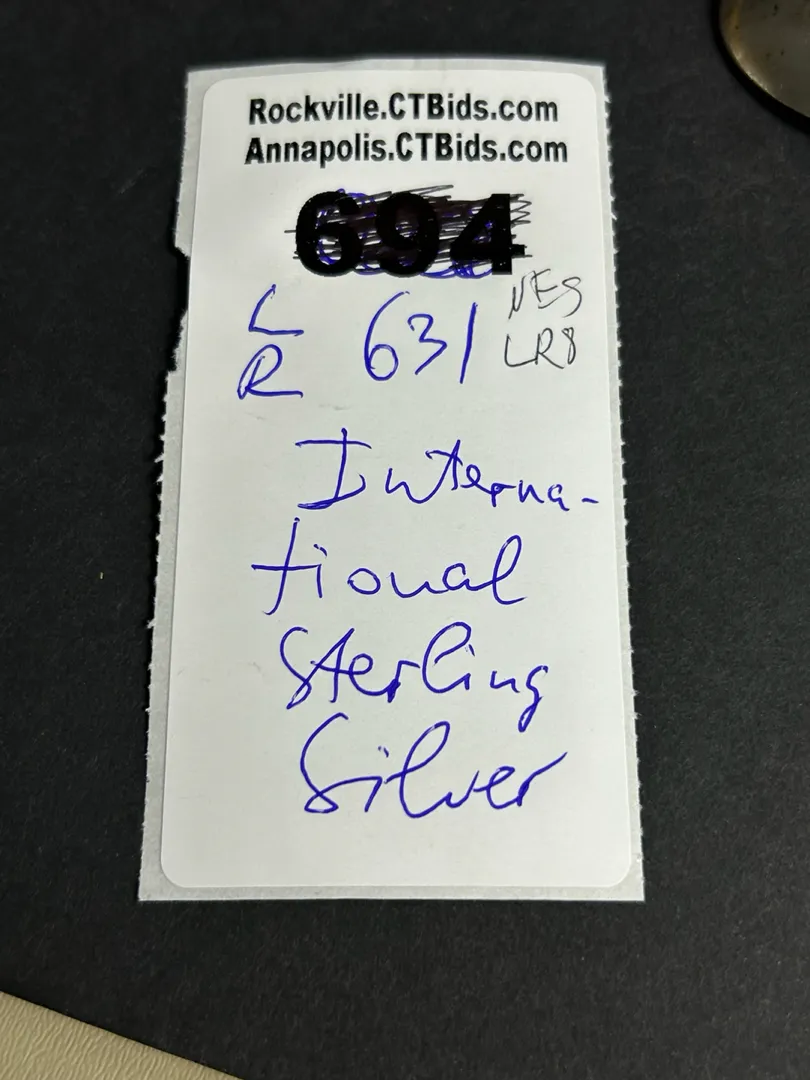 Rockville.CTBids.com
Annapolis.CTBids.com
694
L
R 631
NES
LR8
Interna-
tional
Sterling
Silver